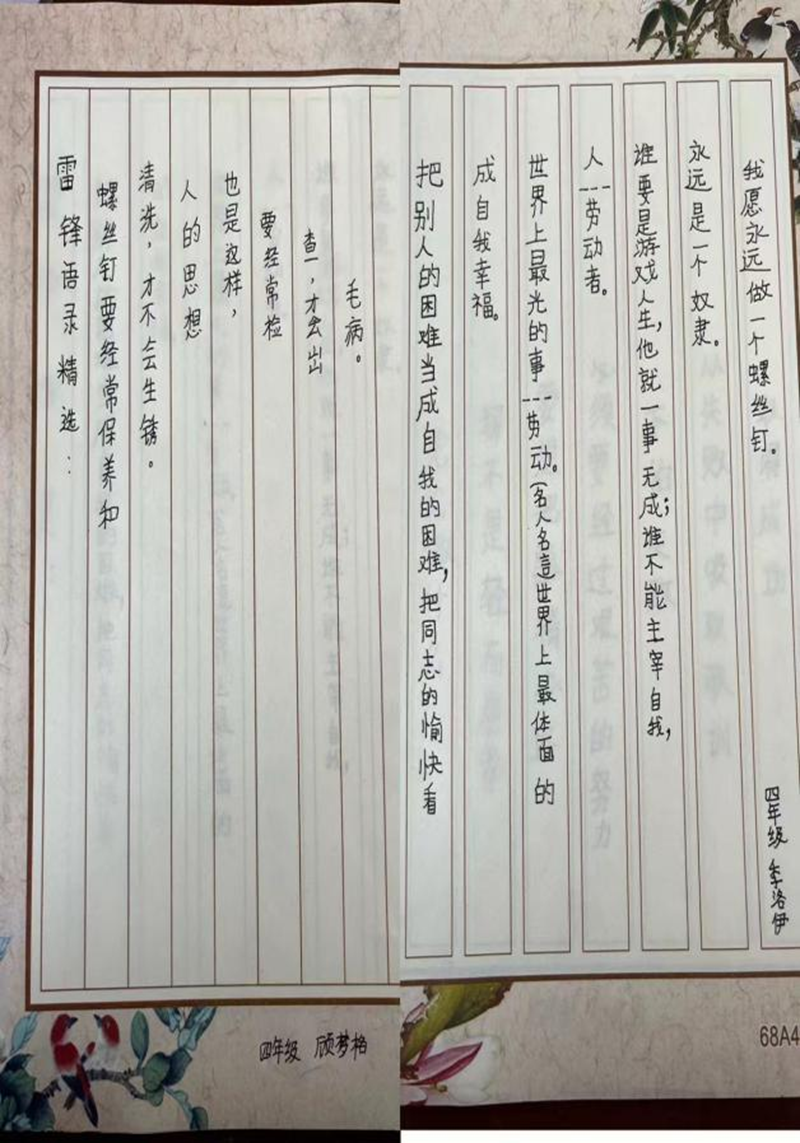 雷锋语录精选：
螺丝钉要经常保养和
清洗，才不会生锈。
人的思想
也是这样，
要经常检
查，才会出
毛病。
四年级 顾梦格
把别人的困难当成自我的困难，把同志的愉快看
成自我幸福。
世界上最光的事---劳动。(名人名言世界上最体面的
人---劳动者。
谁要是游戏人生，他就一事无成；谁不能主宰自我，
永远是一个奴隶。
我愿永远做一个螺丝钉。
四年级 李洛伊
68A4